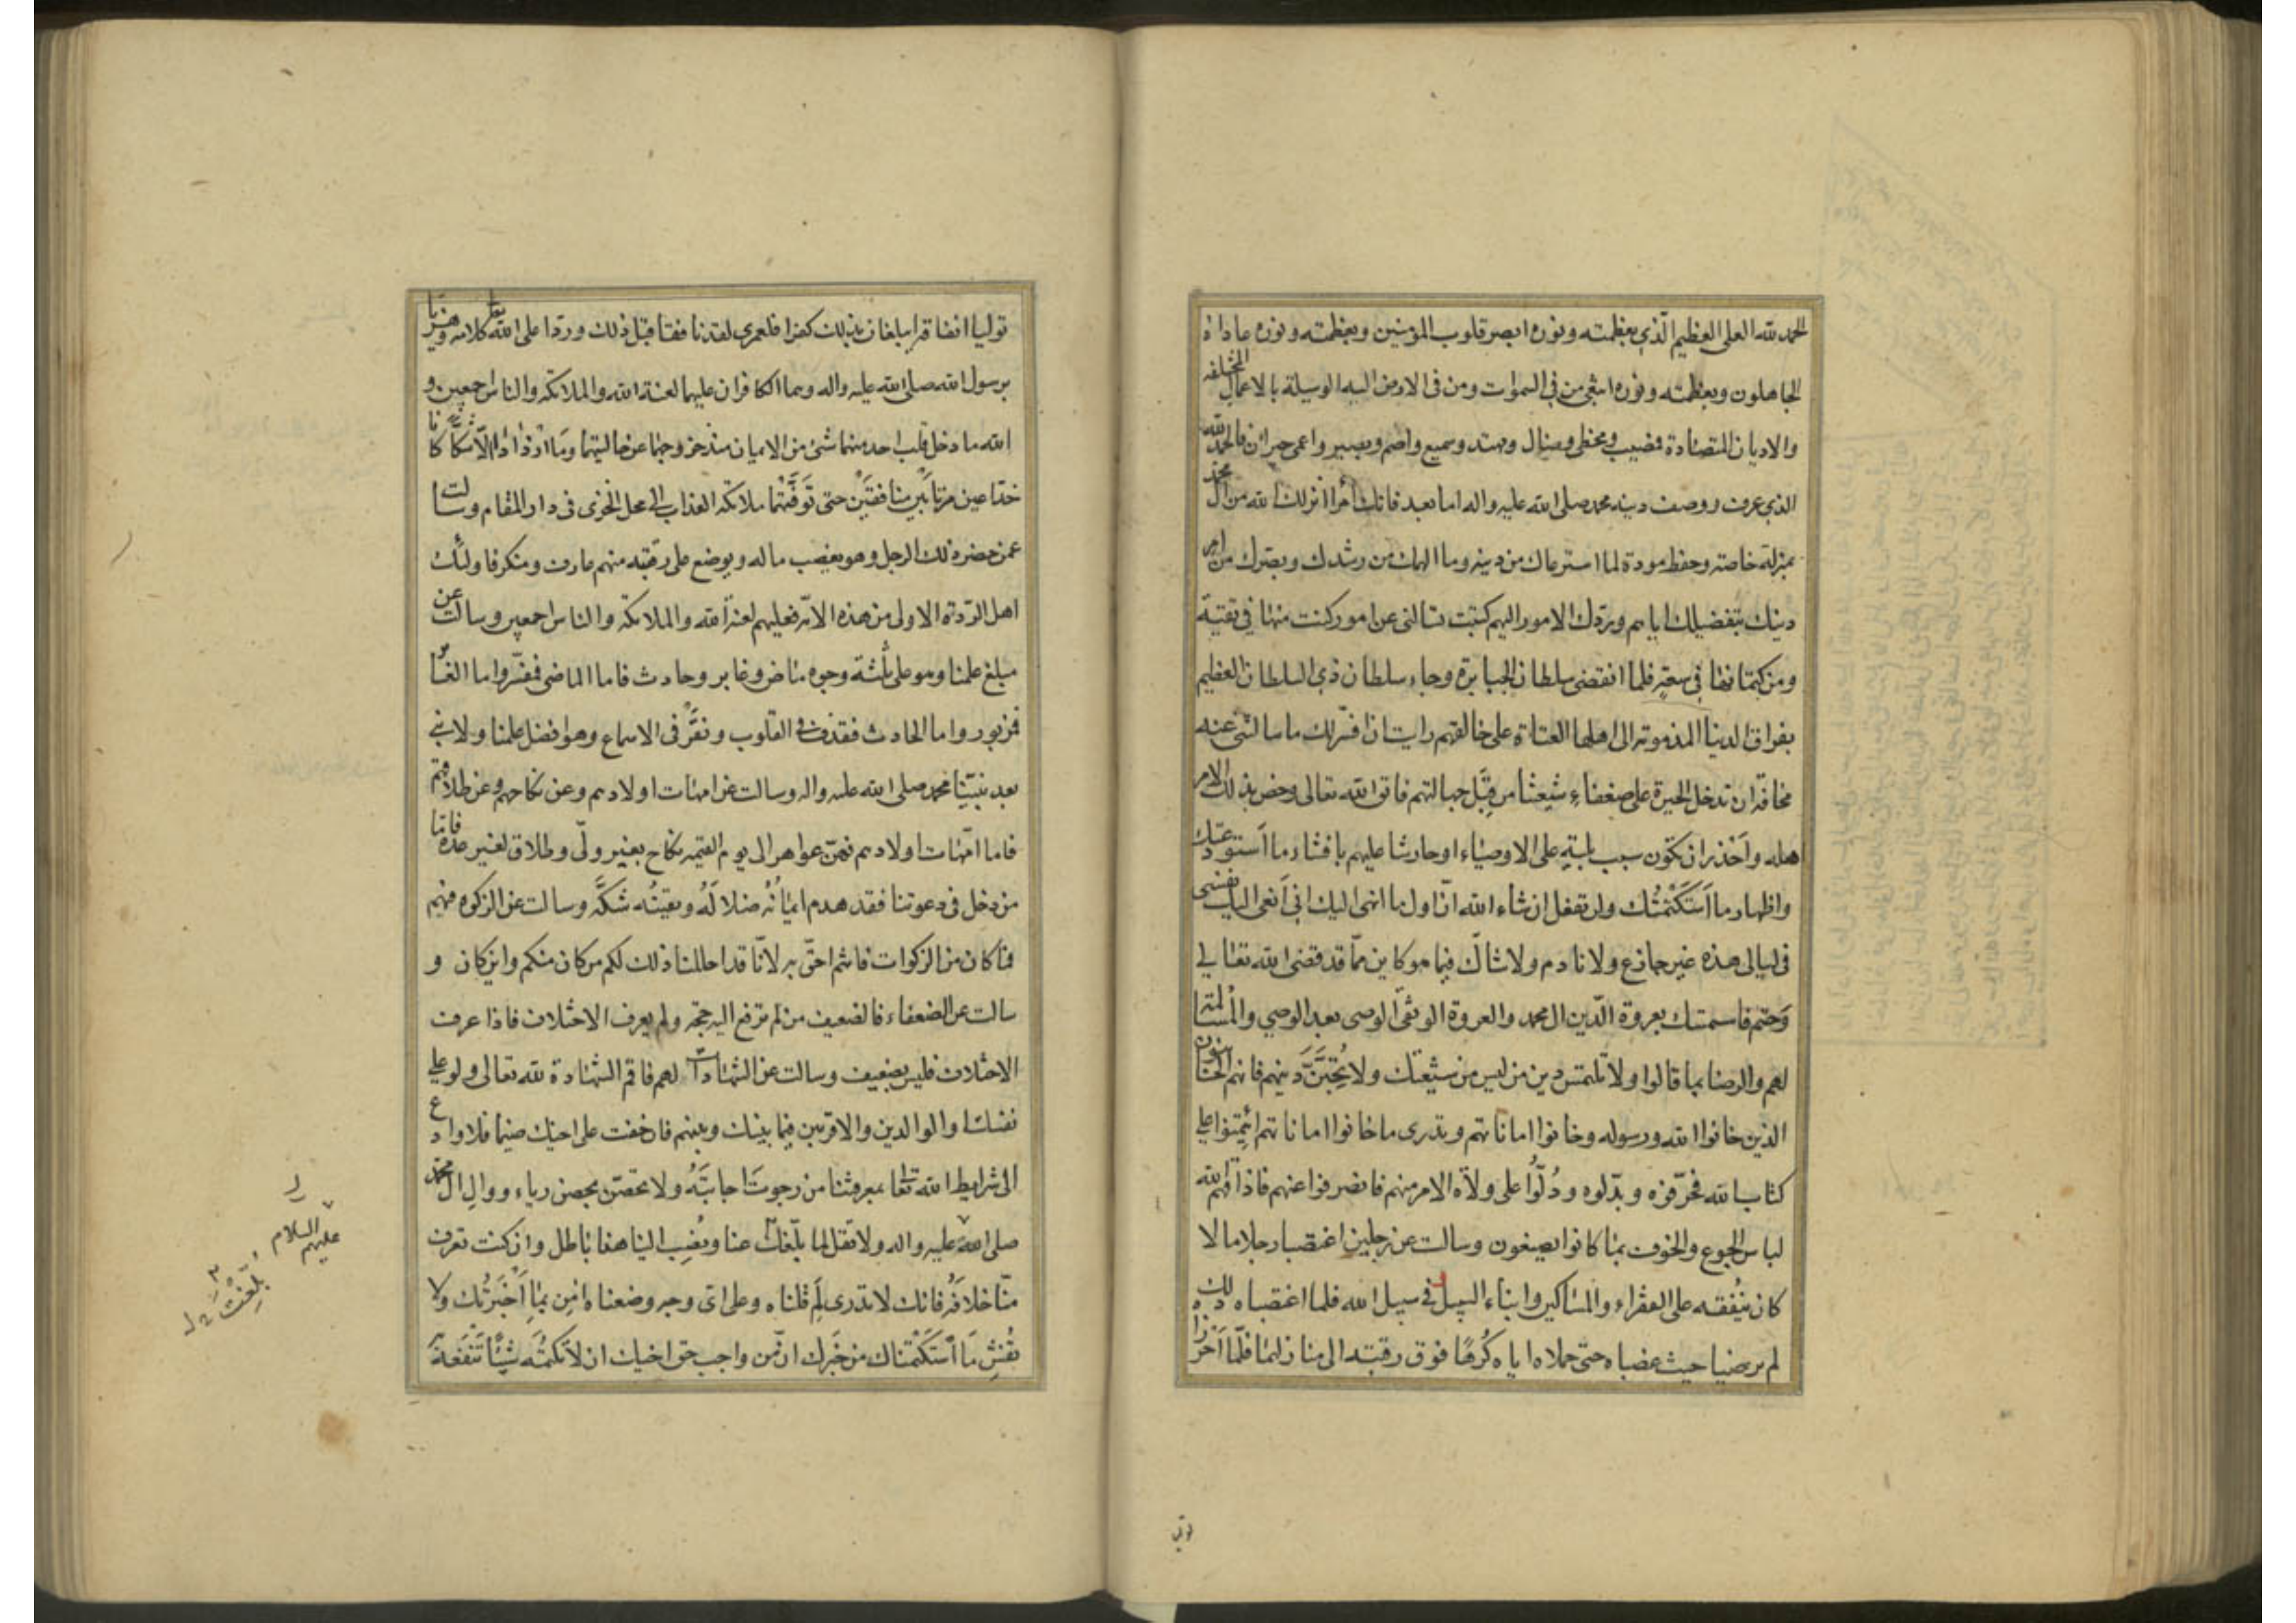 الحمد لله العلي العظيم الّذي بعظمته ونوره ابصر قلوب المؤمنين وبعظمته ونوره عاداه
الجاهلون وبعظمته ونوره ابتغى من في السموات ومن في الارض اليه الوسيلة بالاعمال المختلفه
والاديان المتضادة فمصيب ومخطى وضال ومهتد وسميع واصم وبصير واعمى حيران فالحمد لله
الذي عرف ووصف دينه محمد صلى الله عليه واله اما بعد فانك امرا انزلك الله من ال محمد
بمنزلة خاصته وحفظ مودة لما استرعاك من دينه وما الهمك من رشدك وبصرك من امر
دينك بتفضيلك اياهم وبردك الامور اليهم كتبت تسالني عن امور كنت منها في تقية
ومن كتمانها في سعة فلما انقضى سلطان الجبابرة وجاء سلطان ذي السلطان العظيم
بفراق الدنيا المذمومة الى اهلها العتاة على خالقهم رايت ان افسر لك ما سالتني عنه
مخافة ان تدخل الحيرة على ضعفاء شيعتنا من قِبَل جهالتهم فاتق الله تعالى وخص بذلك الامر
اهله واَحْذر ان تكون سبب بلية على الاوصياء او حارشا عليهم بافشاء ما اَستودعتك
واظهار ما اَستَكْتَمْتُك ولن تفعل ان شاء الله انّ اول ما انهى اليك اني اَنعى اليك نفسي
في ليالي هذه غير جازع ولا نادم ولا شاكّ فيما هو كاين ممّا قد قضى الله تعالى
وحَتم فاستمسك بعروة الّدين ال محمد والعروة الوثقى الوصي بعد الوصي والمسالمة
لهم والرضا بما قالوا ولا تلتمس دين من ليس من شيعتك ولا تُحِبَّنَّ دينهم فانهم الخائنون
الذين خانوا الله ورسوله وخانوا اماناتهم وتدرى ما خانوا اماناتهم ائتمنوا على
كتاب الله فحرّفوه وبدّلوه ودُلّوا على ولاة الامر منهم فانصرفوا عنهم فاذاقهم الله
لباس الجوع والخوف بما كانوا يصنعون وسالت عن رجلين اغتصبا رجلا مالا
كان يُنْفقه على الفقراء والمساكين وابناء السبيل في سبيل الله فلما اغتصباه ذلك
لم يرضيا حيث غصباه حتى حملاه اياه كُرهًا فوق رقبته الى منازلهما فلّما اَحْرزاه
توليا انفاقه ايبلغان بذلك كفرا فلعمرى لقد نافقا قبل ذلك وردّا على الله تعالى كلامه وهزئا
برسول الله صلى الله عليه واله وهما الكافران عليهما لعنة الله والملائكة والناس اجمعين و
الله ما دخل قلب احد منهما شئ من الايمان منذ خروجهما عن حالتيهما وما ازدادا الّا شكًّا كانا
خدّاعين مرتابَيْن منافقَيْن حتى تَوفّتْهما ملائكة العذاب الى محل الخزى في دار المقام وسالت
عمن حضر ذلك الرجل وهو يغصب ماله ويوضع على رقبته منهم عارف ومنكر فاولئك
اهل الردة الاولى من هذه الامّة فعليهم لعنة الله والملائكة والناس اجمعين وسالت عن
مبلغ علمنا وهو على ثلثة وجوه ماض وغابر وحادث فاما الماضي فمفسّر واما الغابر
فمزبور واما الحادث فقذف في القلوب ونقْر في الاسماع وهو افضل علمنا ولا نبي
بعد نبيّنا محمد صلى الله عليه واله وسالت عن امهات اولادهم وعن نكاحهم وعن طلاقهم
فاما امّهات اولادهم فهنّ عواهر الى يوم القيمة نكاح بغير ولّى وطلاق لغير عدة فامّا
من دخل في دعوتنا فقد هدم ايمَانُهُ ضلالَهُ ويقينُه شكَّهُ وسالت عن الزكوة فيهم
فما كان من الزكوات فانتم احقّ به لانّا قد احللنا ذلك لكم من كان منكم واين كان و
سالت عن الضعفاء فالضعيف من لم ترفع اليه حجة ولم يعرف الاختلاف فاذا عرف
الاختلاف فليس بضعيف وسالت عن الشهادات لهم فاقم الشهادة لله تعالى ولو على
نفسك او الوالدين والاقربين فيما بينك وبينهم فان خفت على اخيك ضيما فلا وادع
الى شرايط الله تعا بمعرفتنا من رجوت اجابتَهُ ولا تحصّن بحصن رياء ووالِ ال محمد
صلى الله عليه واله ولا تقل لما بلّغك عنا ونُسِب الينا هذا باطل وان كنت تعرف
منّا خلافَهُ فانك لا تدرى لِمَ قلناه وعلى اىّ وجه وضعناه امِن بما اَخْبَرْتُك ولا
تُفشِ ما اَستَكْتمناك من خَبَرك ان من واجب حق اخيك ان لا تكتمُه شيئًا تَنْفَعه
عليهم السلام
بلغت
توليا